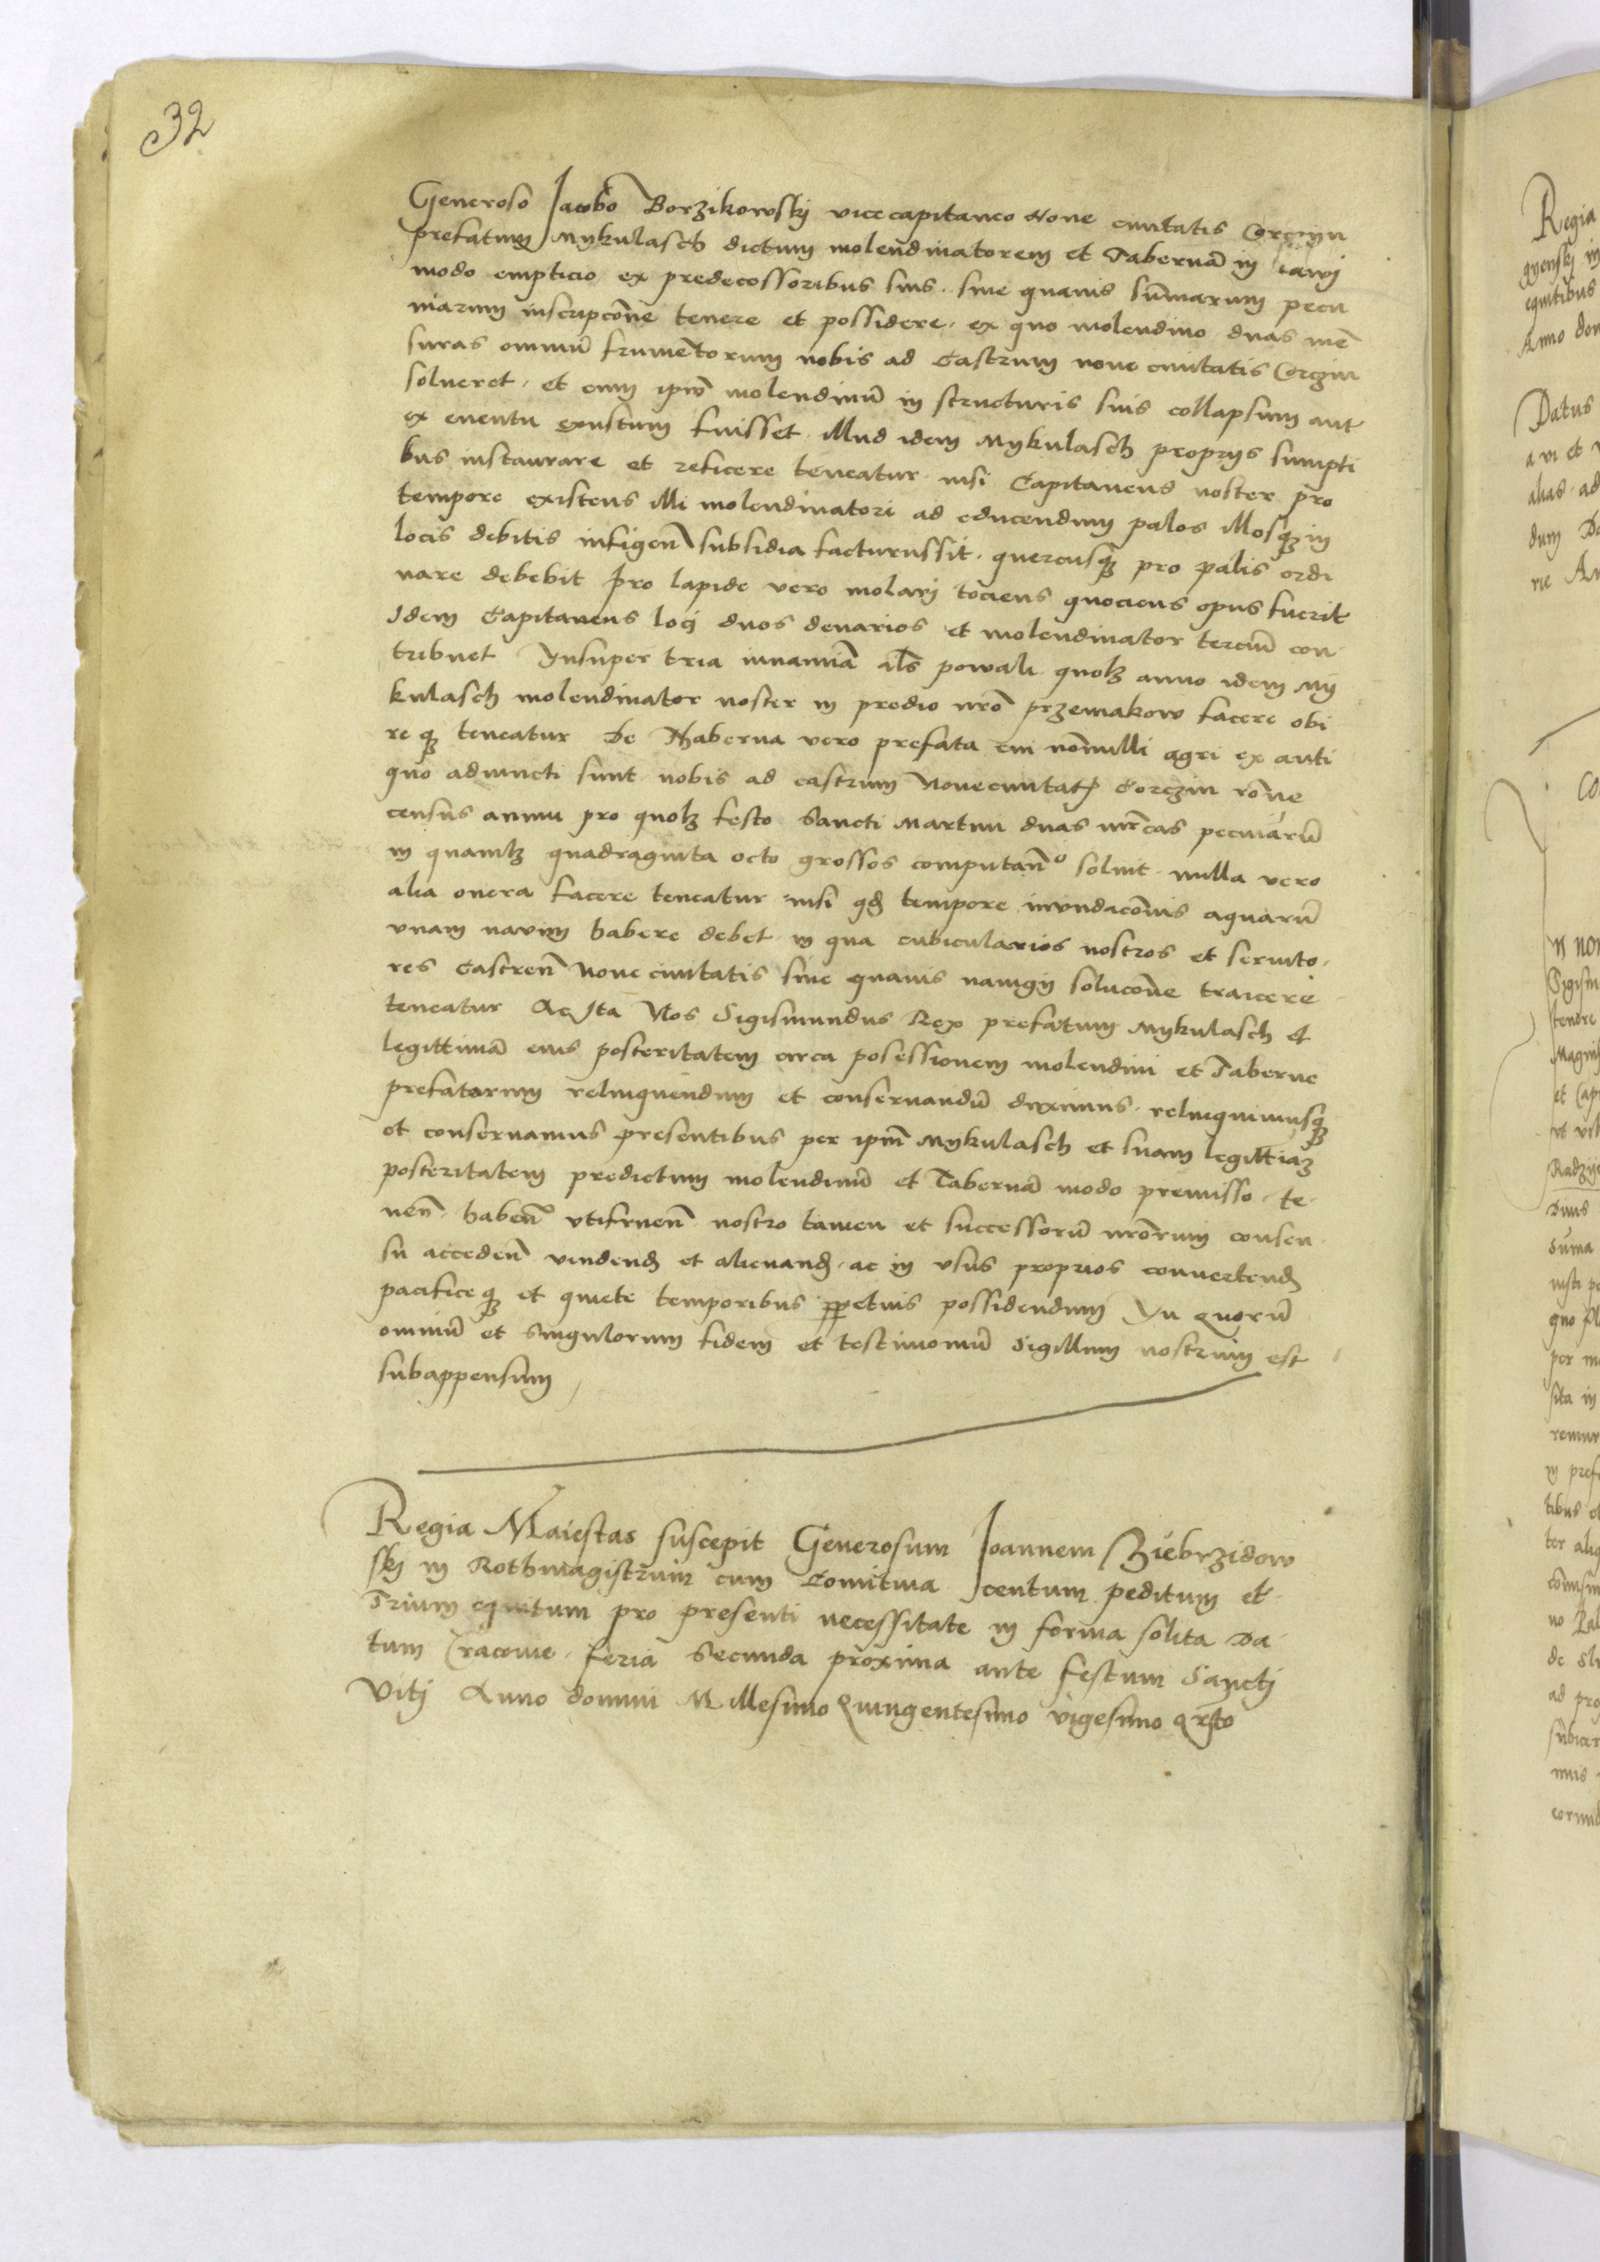 32
Generoso Jacobo Borzikowskj vicecapitaneo None ciuitatis Corczyn
prefatum Mykulasch dictum molendinatorem et Tabernā in
modo empticio ex predecessoribus suis. sine quauis sūmarum pecu
niarum inscripcōne tenere et possidere. ex quo molendino duas mē
suras omniū frumētorum nobis ad Castrum noue ciuitatis Corczin
solueret. et cum ipm̄ molendinū in structuris suis collapsum aut
ex euentu exustum fuisset. illud idem Mykulasch proprijs sumpti
bus instaurare et reficere teneatur. nisi Capitaneus noster pro
tempore existens illi molendinatori ad educendum palos illosqꝫ in
locis debitis infigen̄ subsidia facturussit. quercusqꝫ pro palis ordi
nare debebit pro lapide vero molarj tociens quociens opus fuerit
Idem Capitaneus locj duos denarios et molendinator terciū con
tribuet Jnsuper tria iuuamīa al̄s powali quolꝫ anno idem My
kulasch molendinator noster in predio nrō przemakow facere obi
re qꝫ teneatur De Thaberna vero prefata cui nōnulli agri ex anti
quo adiuncti sunt nobis ad castrum Noueciuitatꝭ Corczin rōne
census annui pro quolꝫ festo Sancti Martini duas mr̄cas pecuniarū
in quamlꝫ quadraginta octo grossos computan̄º soluit. nulla vero
alia onera facere teneatur nisi qđ tempore inundacōnis aquarū
vnam nauim habere debet in qua cubicularios nostros et seruito.
res Castren̄ Noue ciuitatis sine quauis nauigij solucōne traicere
teneatur Ac Jta Nos Sigismundus Rex prefatum Mykulasch et
legittimā eius posteritatem circa posessionem molendini et Taberne
prefatorum relinquendum et conseruandū duximus. relinquimusqꝫ
et conseruamus presentibus per ipm̄ Mykulasch et suam legittiāꝫ
posteritatem predictum molendinū et Tabernā modo premisso. te.
nen̄. haben̄ vtifruen̄. nostro tamen et successorū nrōrum consen.
su acceden̄ vendenđ et alienanđ. ac in vsus proprios conuertenđ
pacificeqꝫ et quiete temporibus ꝑpetuis possidendum Jn quorū
omniū et singulorum fidem et testimoniū Sigillum nostrum est
subappensum
Regia Maiestas suscepit Generosum Joannem Zŭebrzidow
skj in Rothmagistrum cum Comitiua centum peditum et
Trium equitum pro presenti necessitate in forma solita Da
tum Cracouie. feria secunda proxima ante festum Sanctj
Vitj Anno domini Millesimo Quingentesimo vigesimo qr̄to